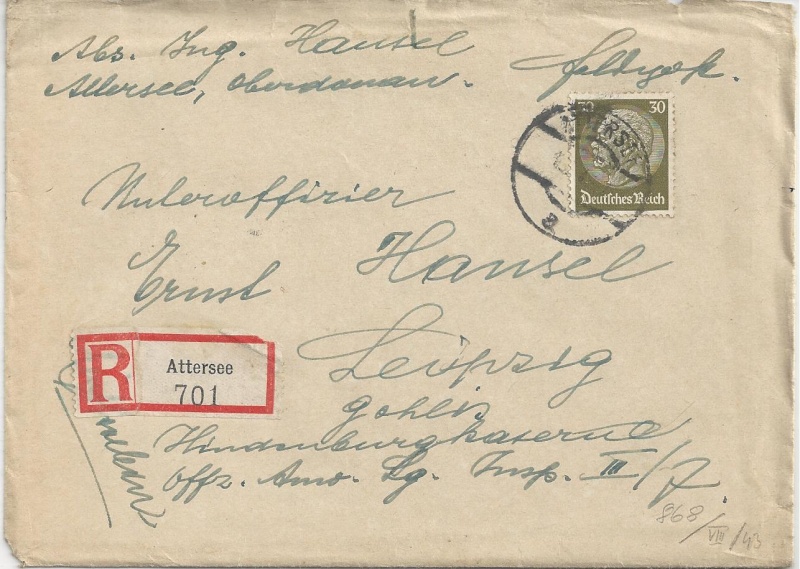 Abs. Ing. Hansel
Attersee, Oberdonau. Feldpost.
30 30
Deutsches Reich
a
Unteroffizier
Ernst Hansel
R Attersee
701
Leipzig
Gohlis
Hindenburgkaserne
Offz. Anw. Lg. Insp. III/7.
868/VIII/43